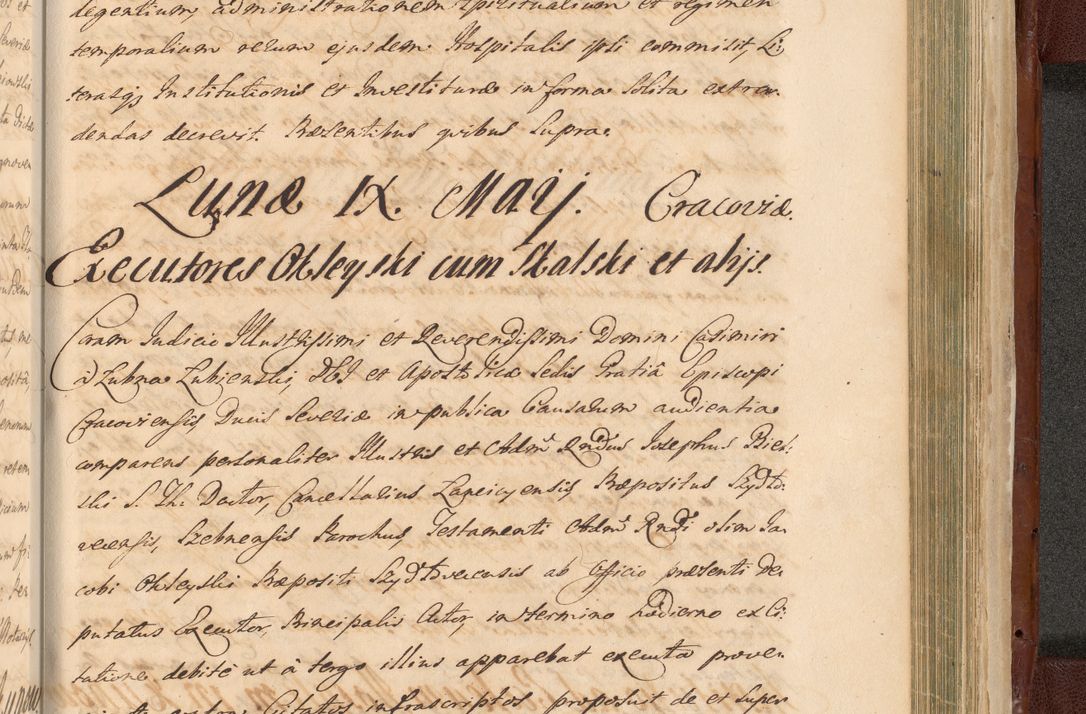 degentium, administrationem Spiritualium et regimen
temporalium rerum ejusdem Hospitalis ipsi commisit, Li-
terasq3 Institutionis et Investituræ in forma solita extra-
dendas decrevit. Præsentibus quibus Supra.
Lunæ IX. Maij. Cracoviæ.
Executores Okleyski cum Skalski et alijs.
Coram Judicio Illustrissimi et Reverendissimi Domini Casimiri
à Łubna Łubienski, DEI et Apostolicæ Sedis Gratiâ Episcopi
Cracoviensis Ducis Severiæ in publica Causarum audientia
comparens personaliter Illustris et Adm. Rndus Josephus Bier-
ski S. Th. Doctor, Cancellarius Lanciciensis Præpositus Szydło-
vecensis, Szebnensis Parochus, Testamenti Adm. Rndi olim Ja-
cobi Okleyski Præpositi Szydłovecensis ab Officio præsenti De-
putatus Executor, Principalis Actor, in termino hodierno ex Ci-
tatione debitè ut à tergo illius apparebat executa prove-
Citatos infrascriptos proposuit de et super